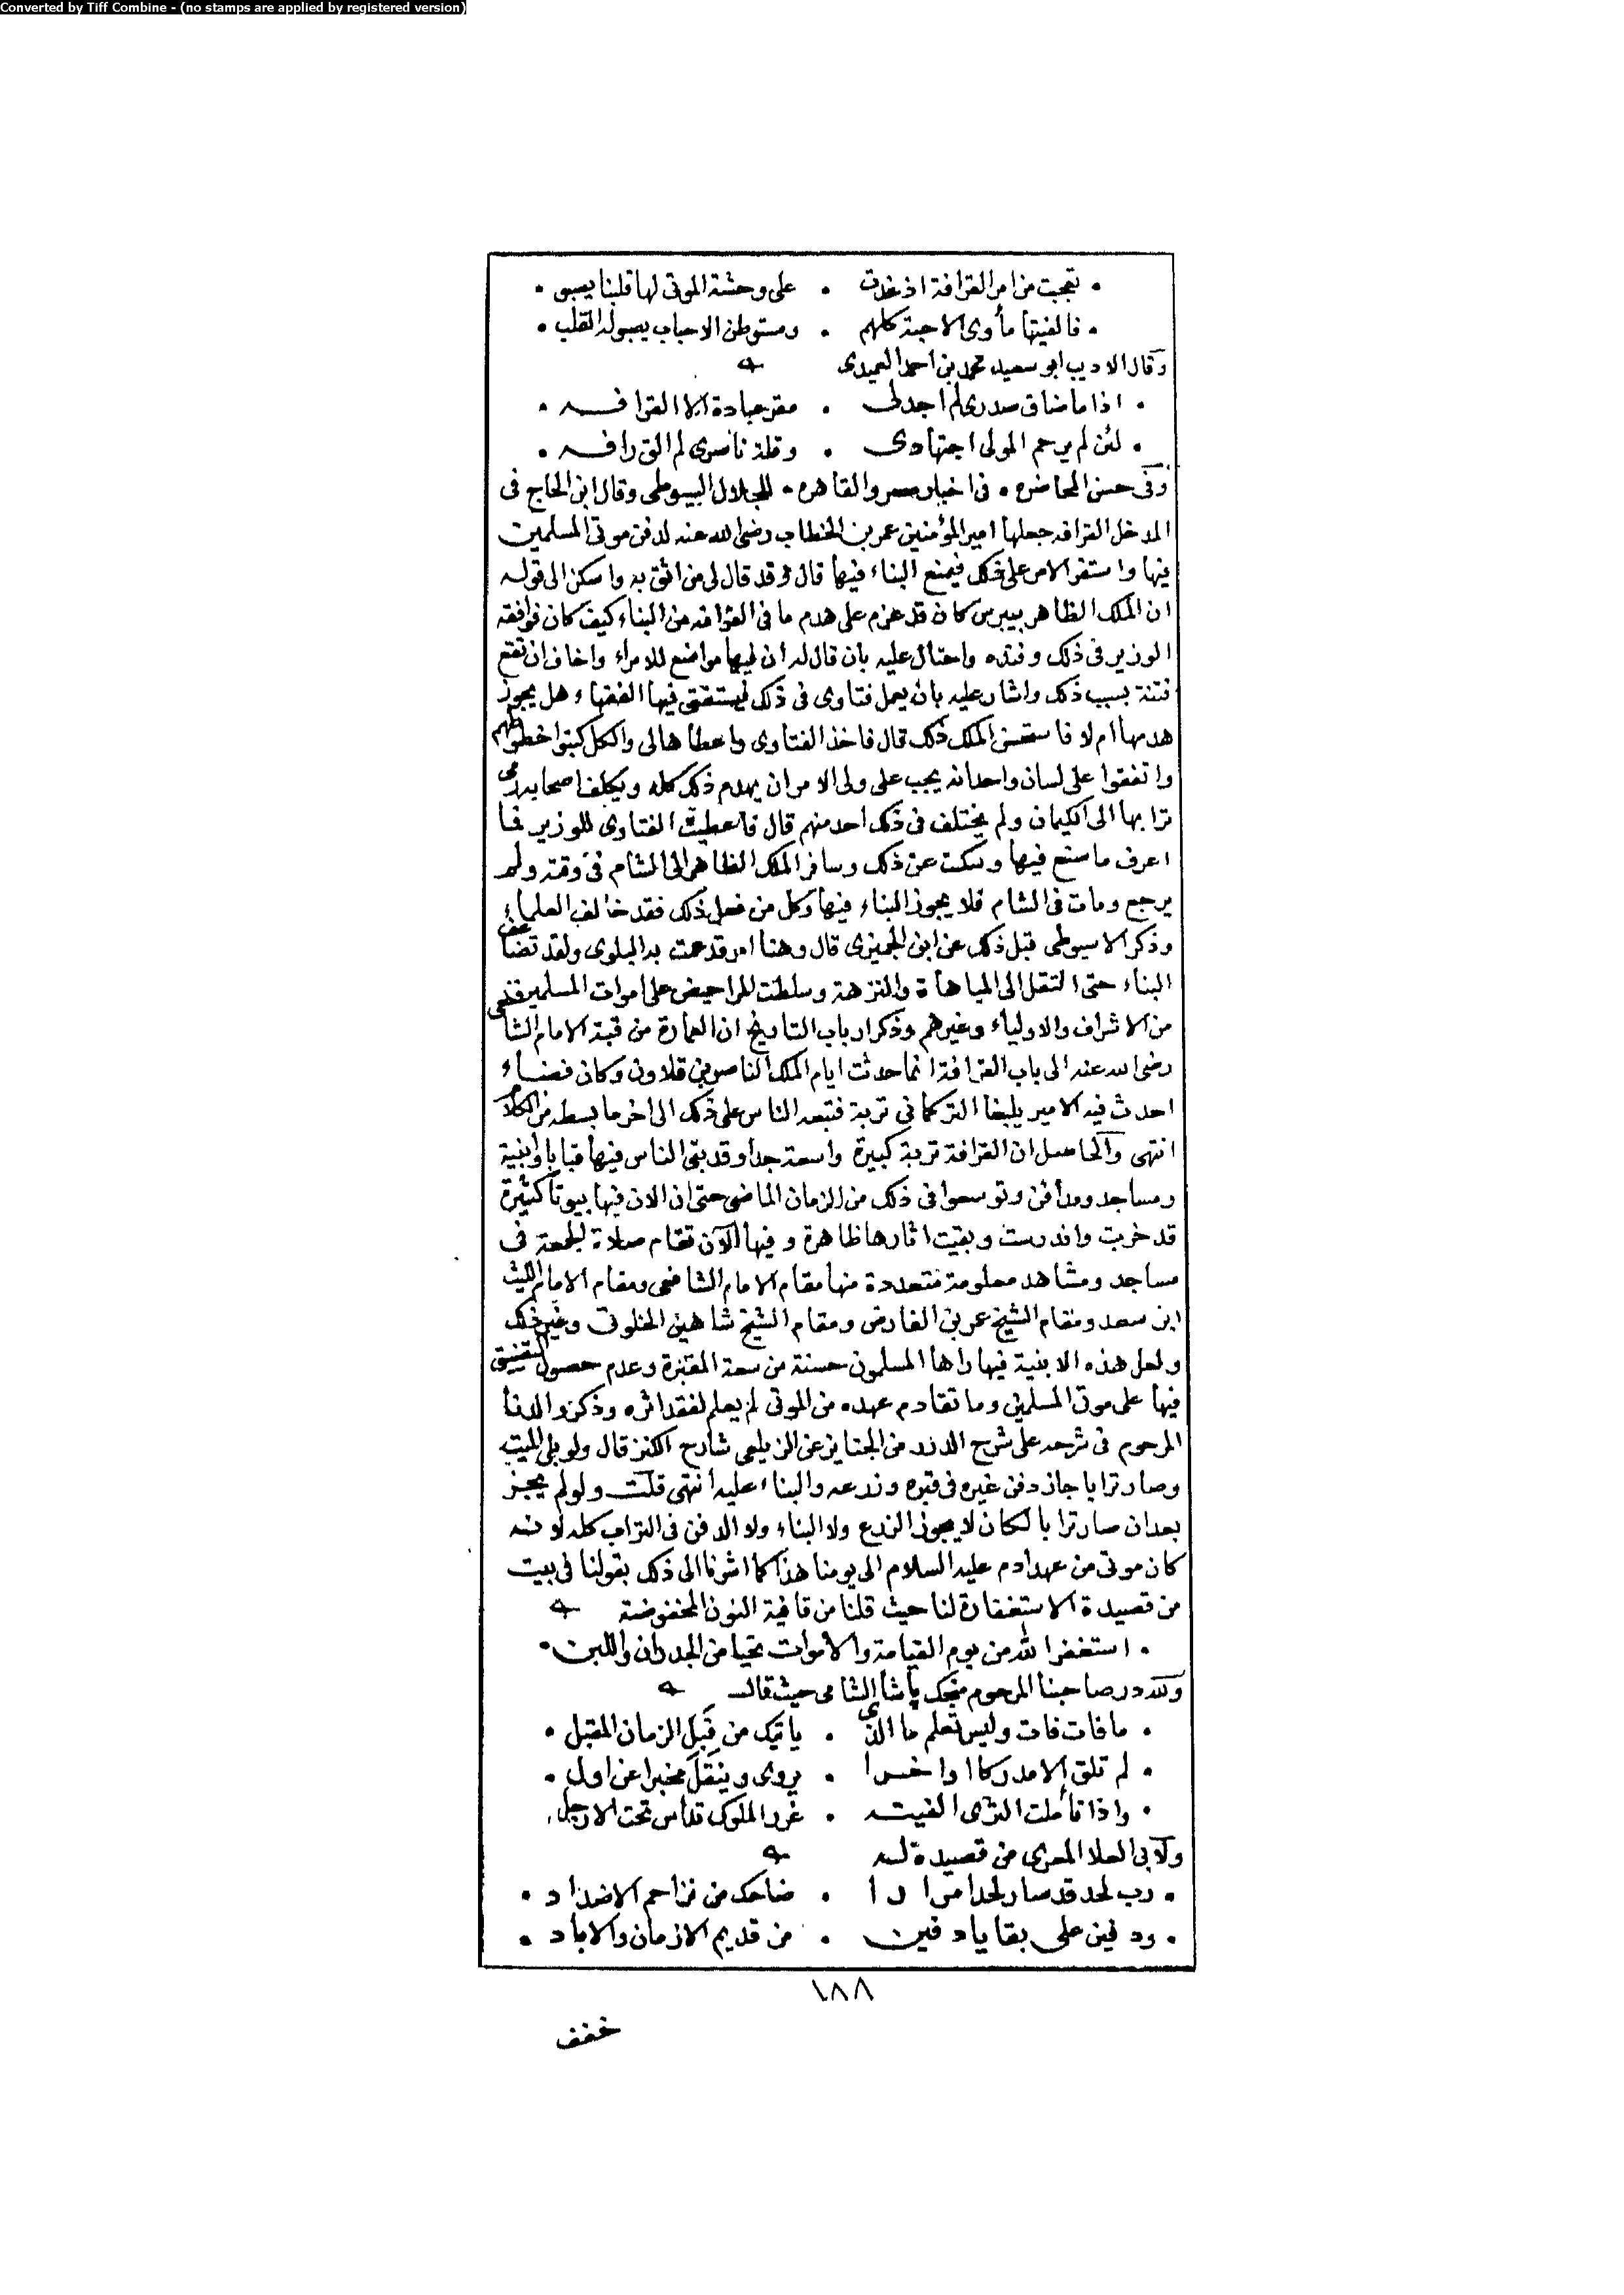 Converted by Tiff Combine - (no stamps are applied by registered version)
• تعجبت من امر القرافة اذ غدت • على وحشة الموتى لها قلبنا يصبو •
• فالفيتها مأوى الاحبة كلهم • ومستوطن الاحباب يصبو له القلب •
وقال الاديب ابو سعيد محمد بن احمد العميدى
• اذا ما ضاق صدرى لم اجد لى • مقر عبادة الا القرافه •
• لئن لم يرحم المولى اجتهادى • وقلة ناصرى لم الق رافه •
وفى حسن المحاضره • فى اخبار مصر والقاهره • للجلال السيوطى وقال ابن الحاج فى
المدخل القرافه جعلها امير المؤمنين عمر بن الخطاب رضى الله عنه لدفن موتى المسلمين
فيها واستقر الامر على ذلك فيمنع البناء فيها قال وقد قال لى من اثق به واسكن الى قوله
ان الملك الظاهر بيبرس كان قد عزم على هدم ما فى القرافه من البناء كيف كان فوافقه
الوزير فى ذلك وفنده واحتال عليه بان قال له ان فيها مواضع للامراء واخاف ان تقع
فتنة بسبب ذلك واشار عليه بان يعمل فتاوى فى ذلك ليستفتى فيها الفقهاء هل يجوز
هدمها ام لا فاستحسن الملك ذلك قال فاخذ الفتاوى واعطاها لى والكل كتبوا خطوطهم
واتفقوا على لسان واحد انه يجب على ولى الامر ان يهدم ذلك كله ويكلف اصحابه رمى
ترابها الى الكيمان ولم يختلف فى ذلك احد منهم قال فاعطيت الفتاوى للوزير فما
اعرف ما صنع فيها وسكت عن ذلك وسافر الملك الظاهر الى الشام فى وقته ولم
يرجع ومات فى الشام فلا يجوز البناء فيها وكل من فعل ذلك فقد خالف العلماء
وذكر الاسيوطى قبل ذلك عن ابن الجميزى قال وهنا امر قد عمت به البلوى ولقد تضاعف
البناء حتى انتقل الى المباهاة والنزهة وسلطت المراحيض على اموات المسلمين
من الاشراف والاولياء وغيرهم وذكر ارباب التاريخ ان العمارة من قبة الامام الشافعى
رضى الله عنه الى باب القرافة انما حدثت ايام الملك الناصر بن قلاون وكان فضاء
احدث فيه الامير يلبغا التركمانى تربة فتبعه الناس على ذلك الى اخر ما بسطه من الكلام
انتهى والحاصل ان القرافة تربة كبيرة واسعة جدا وقد بنى الناس فيها قبابا وابنية
ومساجد ومدافن وتوسعوا فى ذلك من الزمان الماضى حتى ان الان فيها بيوتا كثيرة
قد خربت واندرست وبقيت اثارها ظاهرة وفيها الآن تقام صلاة الجمعة فى
مساجد ومشاهد معلومة متعددة منها مقام الامام الشافعى ومقام الامام الليث
ابن سعد ومقام الشيخ عمر بن الفارض ومقام الشيخ شاهين الخلوتى وغير ذلك
ولعل هذه الابنية فيها راها المسلمون حسنة من سعة المقبرة وعدم حصول التضييق
فيها على موتى المسلمين وما تقادم عهده من الموتى لم يعلم لفقد اثره وذكر والدنا
المرحوم فى شرحه على شرح الدرر من الجنايز عن الزيلعى شارح الكنز قال ولو بلى الميت
وصار ترابا جاز دفن غيره فى قبره وزرعه والبناء عليه انتهى قلت ولو لم يجز
بعد ان صار ترابا لكان لا يجوز الزرع ولا البناء ولا الدفن فى التراب كله لانه
كان موتى من عهد ادم عليه السلام الى يومنا هذا كما اشرنا الى ذلك بقولنا فى بيت
من قصيدة الاستغفارة لنا حيث قلنا من قافية النون المخفوضة
• استغفر الله من يوم القيامة والاموات تحيا من الجدران واللبن •
ولله در صاحبنا المرحوم منجك باشا الشامى حيث قال
• ما فات فات وليس تعلم ما الذى • ياتيك من قبل الزمان المقبل •
• لم تلق الا مدركا اواخرا • يروى وينقل مخبرا عن اول •
• واذا تأملت الثرى الفيته • غرر الملوك تداس تحت الارجل •
ولابى العلا المعرى من قصيدة له
• رب لحد قد صار لحدا مرارا • ضاحك من تزاحم الاضداد •
• ودفين على بقايا دفين • من قديم الازمان والاباد •
١٨٨
خفف